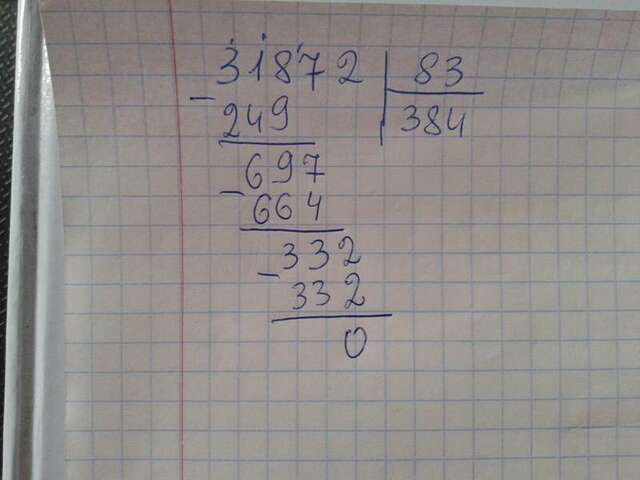 31872 83
- 249 384
697
- 664
332
- 332
0